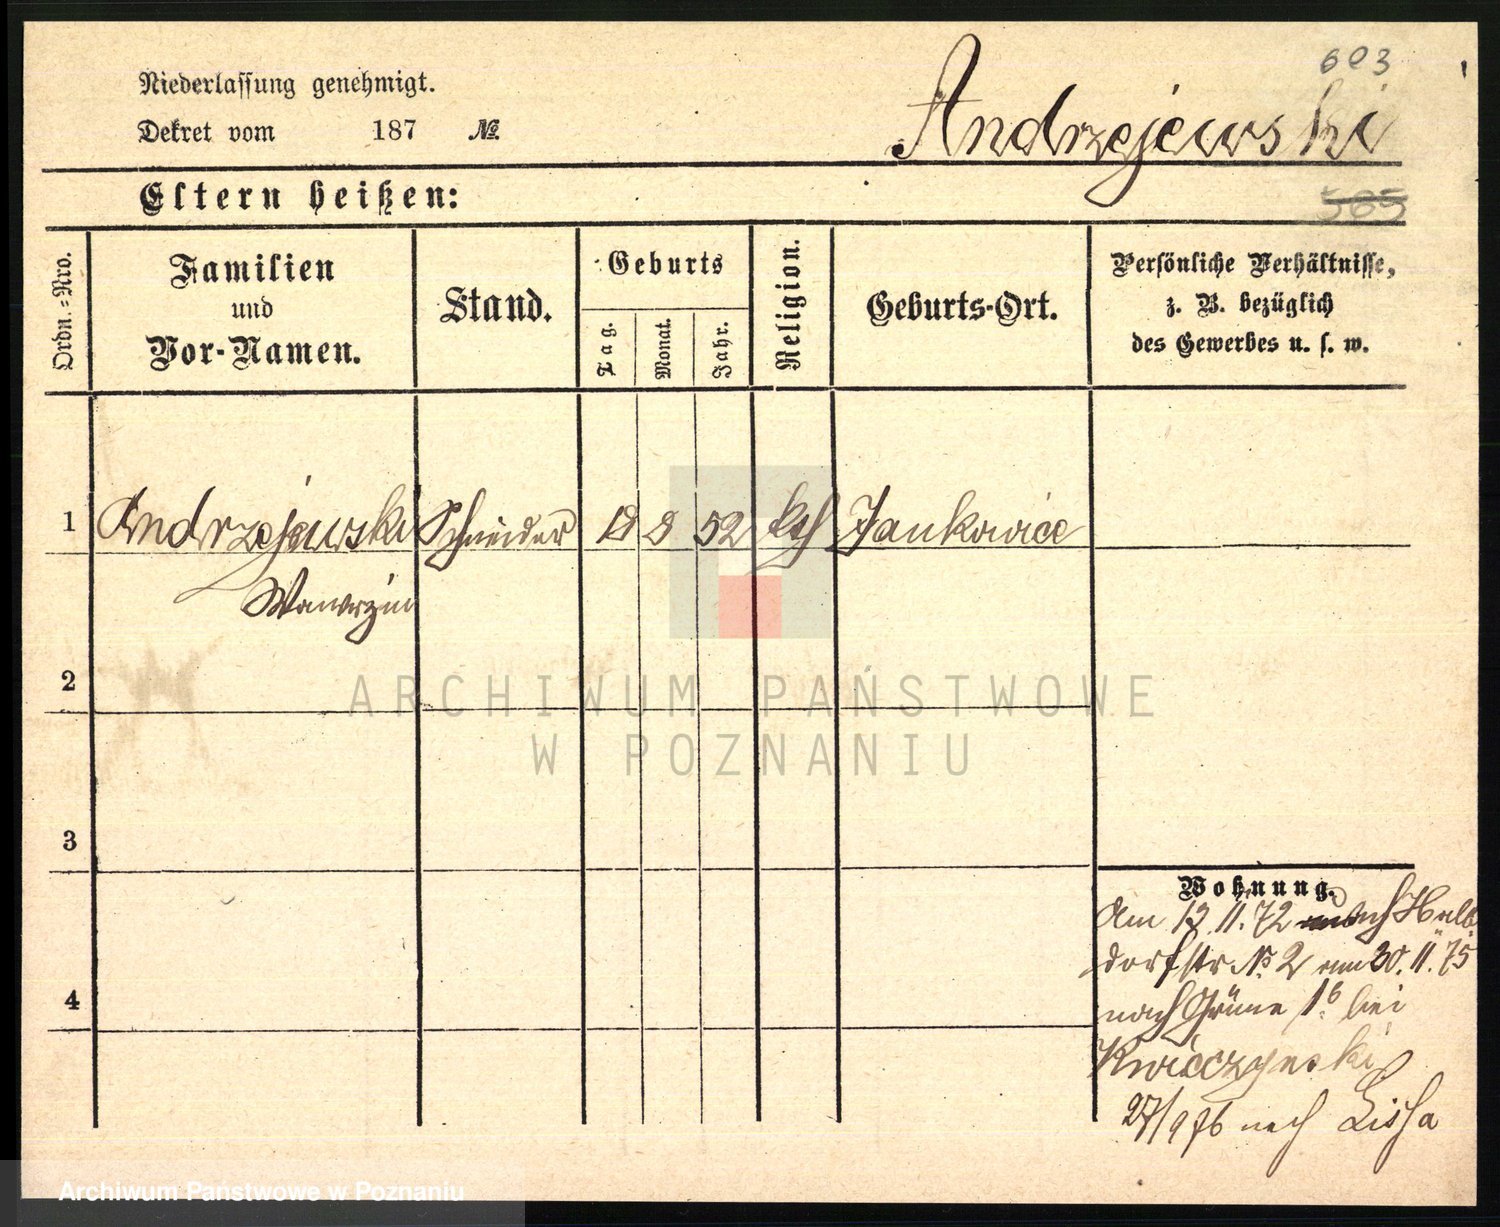 603
Niederlassung genehmigt.
Dekret vom 187 №
Andrzejewski
Eltern heißen:
565
Ordn.=Nro.
Familien
und
Vor-Namen.
Stand.
Geburts
Tag.
Monat.
Jahr.
Religion.
Geburts-Ort.
Persönliche Verhältnisse,
z. B. bezüglich
des Gewerbes u. s. w.
1 Andrzejewski Schneider 8 52 kth Jankowice
Wawrzin
2
ARCHIWUM PAŃSTWOWE
W POZNANIU
3
Wohnung.
Am 13.11.72 nach Halb
dorfstr № 2 am 30.11.75
4
nach Grüne 1b bei
27/9 76 nach Lissa
Archiwum Państwowe w Poznaniu